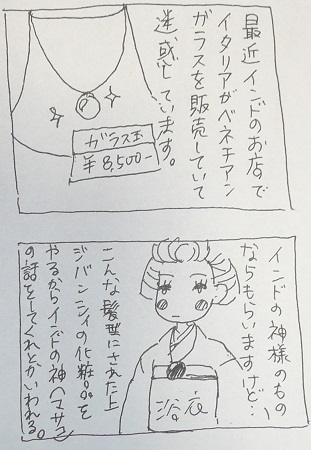 最近インドのお店で
イタリアがベネチアン
ガラスを販売していて
迷惑しています。
ガラス玉
¥8,500-
インドの神様のもの
ならもらいますけど…
こんな髪型にされた上
ジバンシィの化粧品を
やるからインドの神ヘマサコ
の話をしてくれとかいわれる。
浴衣